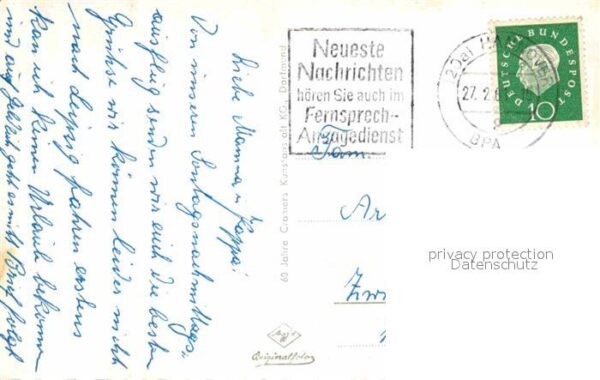 Liebe Mamma u. Pappa!
Von unserem Sontagsnachmittags-
ausflug senden wir euch die besten
Grüsse wir können leider nicht
nach Leipzig fahren erstens
kan ich keinen Urlaub bekommen
und auf geht es nicht Brief folgt
60 Jahre Cramers Kunstanstalt KG., Dortmund
Neueste
Nachrichten
hören Sie auch im
Fernsprech-
Ansagedienst
DEUTSCHE BUNDESPOST
10
27. 2. 6
BPA
Fam.
Ar
Zwi
privacy protection
Datenschutz
Originalfoto